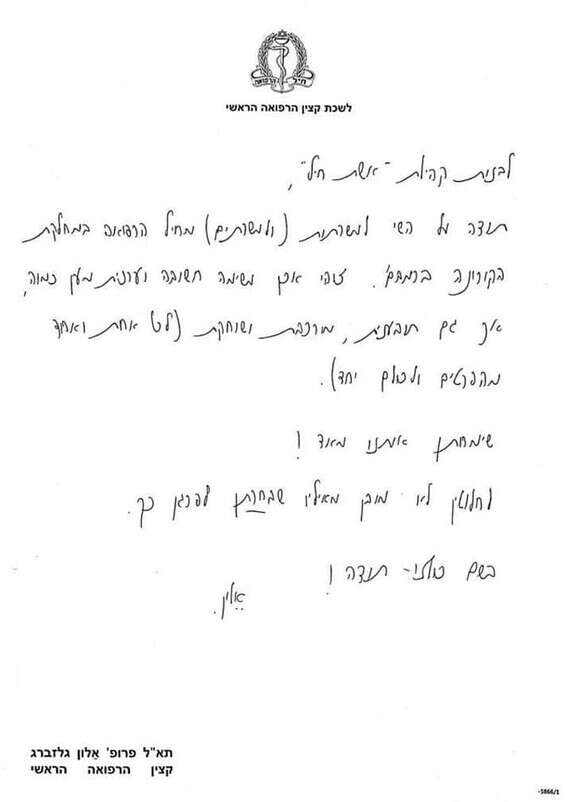 חיל הרפואה
לשכת קצין הרפואה הראשי
לבנות קהילת "אשת חיל",
תודה על השי למשרתות (ולמשרתים) מחיל הרפואה במחלקת
הקורונה ברמב"ם. זוהי אכן משימה חשובה וערכית מאין כמוה,
אך גם תובענית, מורכבת ושוחקת (לכל אחת ואחד
מהפרטים ולכולם יחד).
שימחתן אותנו מאוד!
לחלוטין לא מובן מאיליו שבחרתן לפרגן כך.
בשם כולנו - תודה!
אֵלון.
תא"ל פרופ' אֵלון גלזברג
קצין הרפואה הראשי
-5866/1